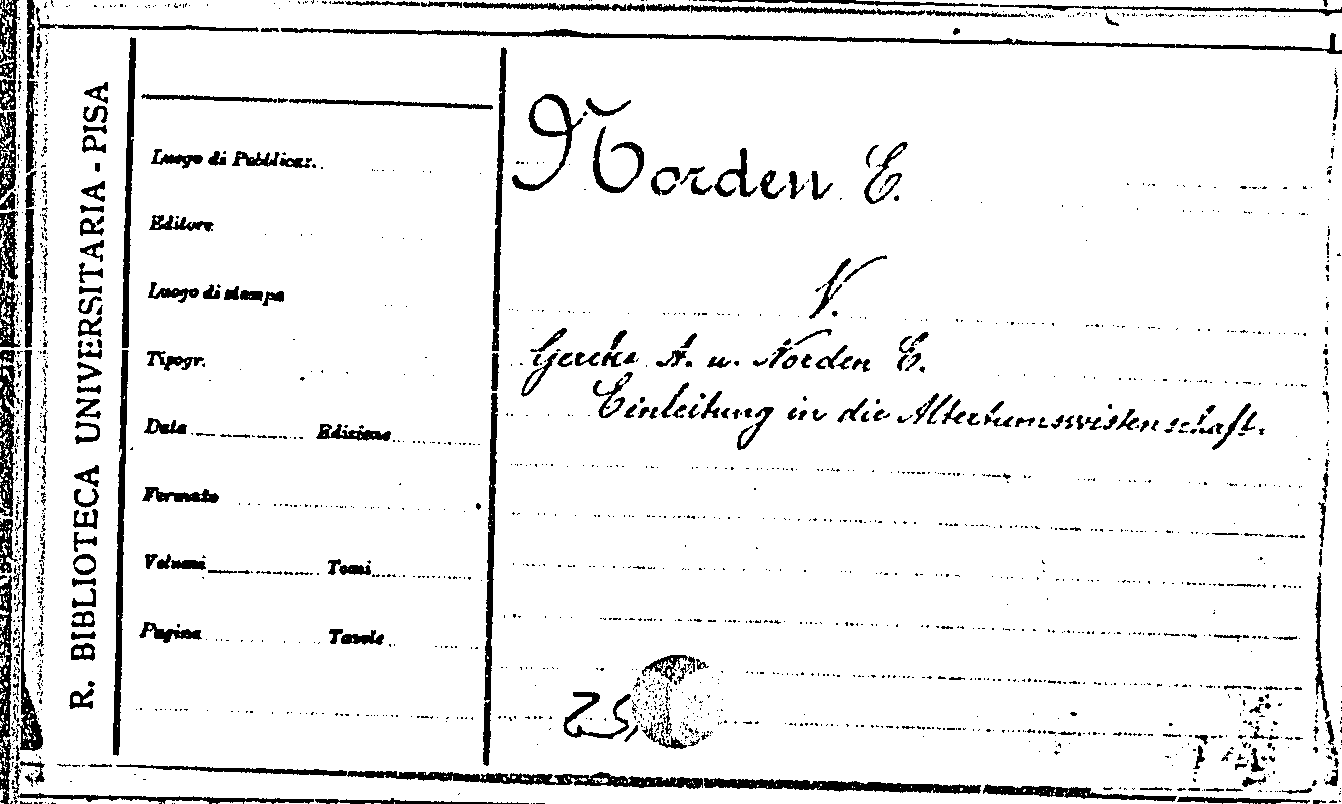 R. BIBLIOTECA UNIVERSITARIA - PISA
Luogo di Pubblicaz.
Editore
Luogo di stampa
Tipogr.
Data Edizione
Formato
Volumi Tomi
Pagine Tavole
Norden E.
V.
Gercke A. u. Norden E.
Einleitung in die Altertumswissenschaft.